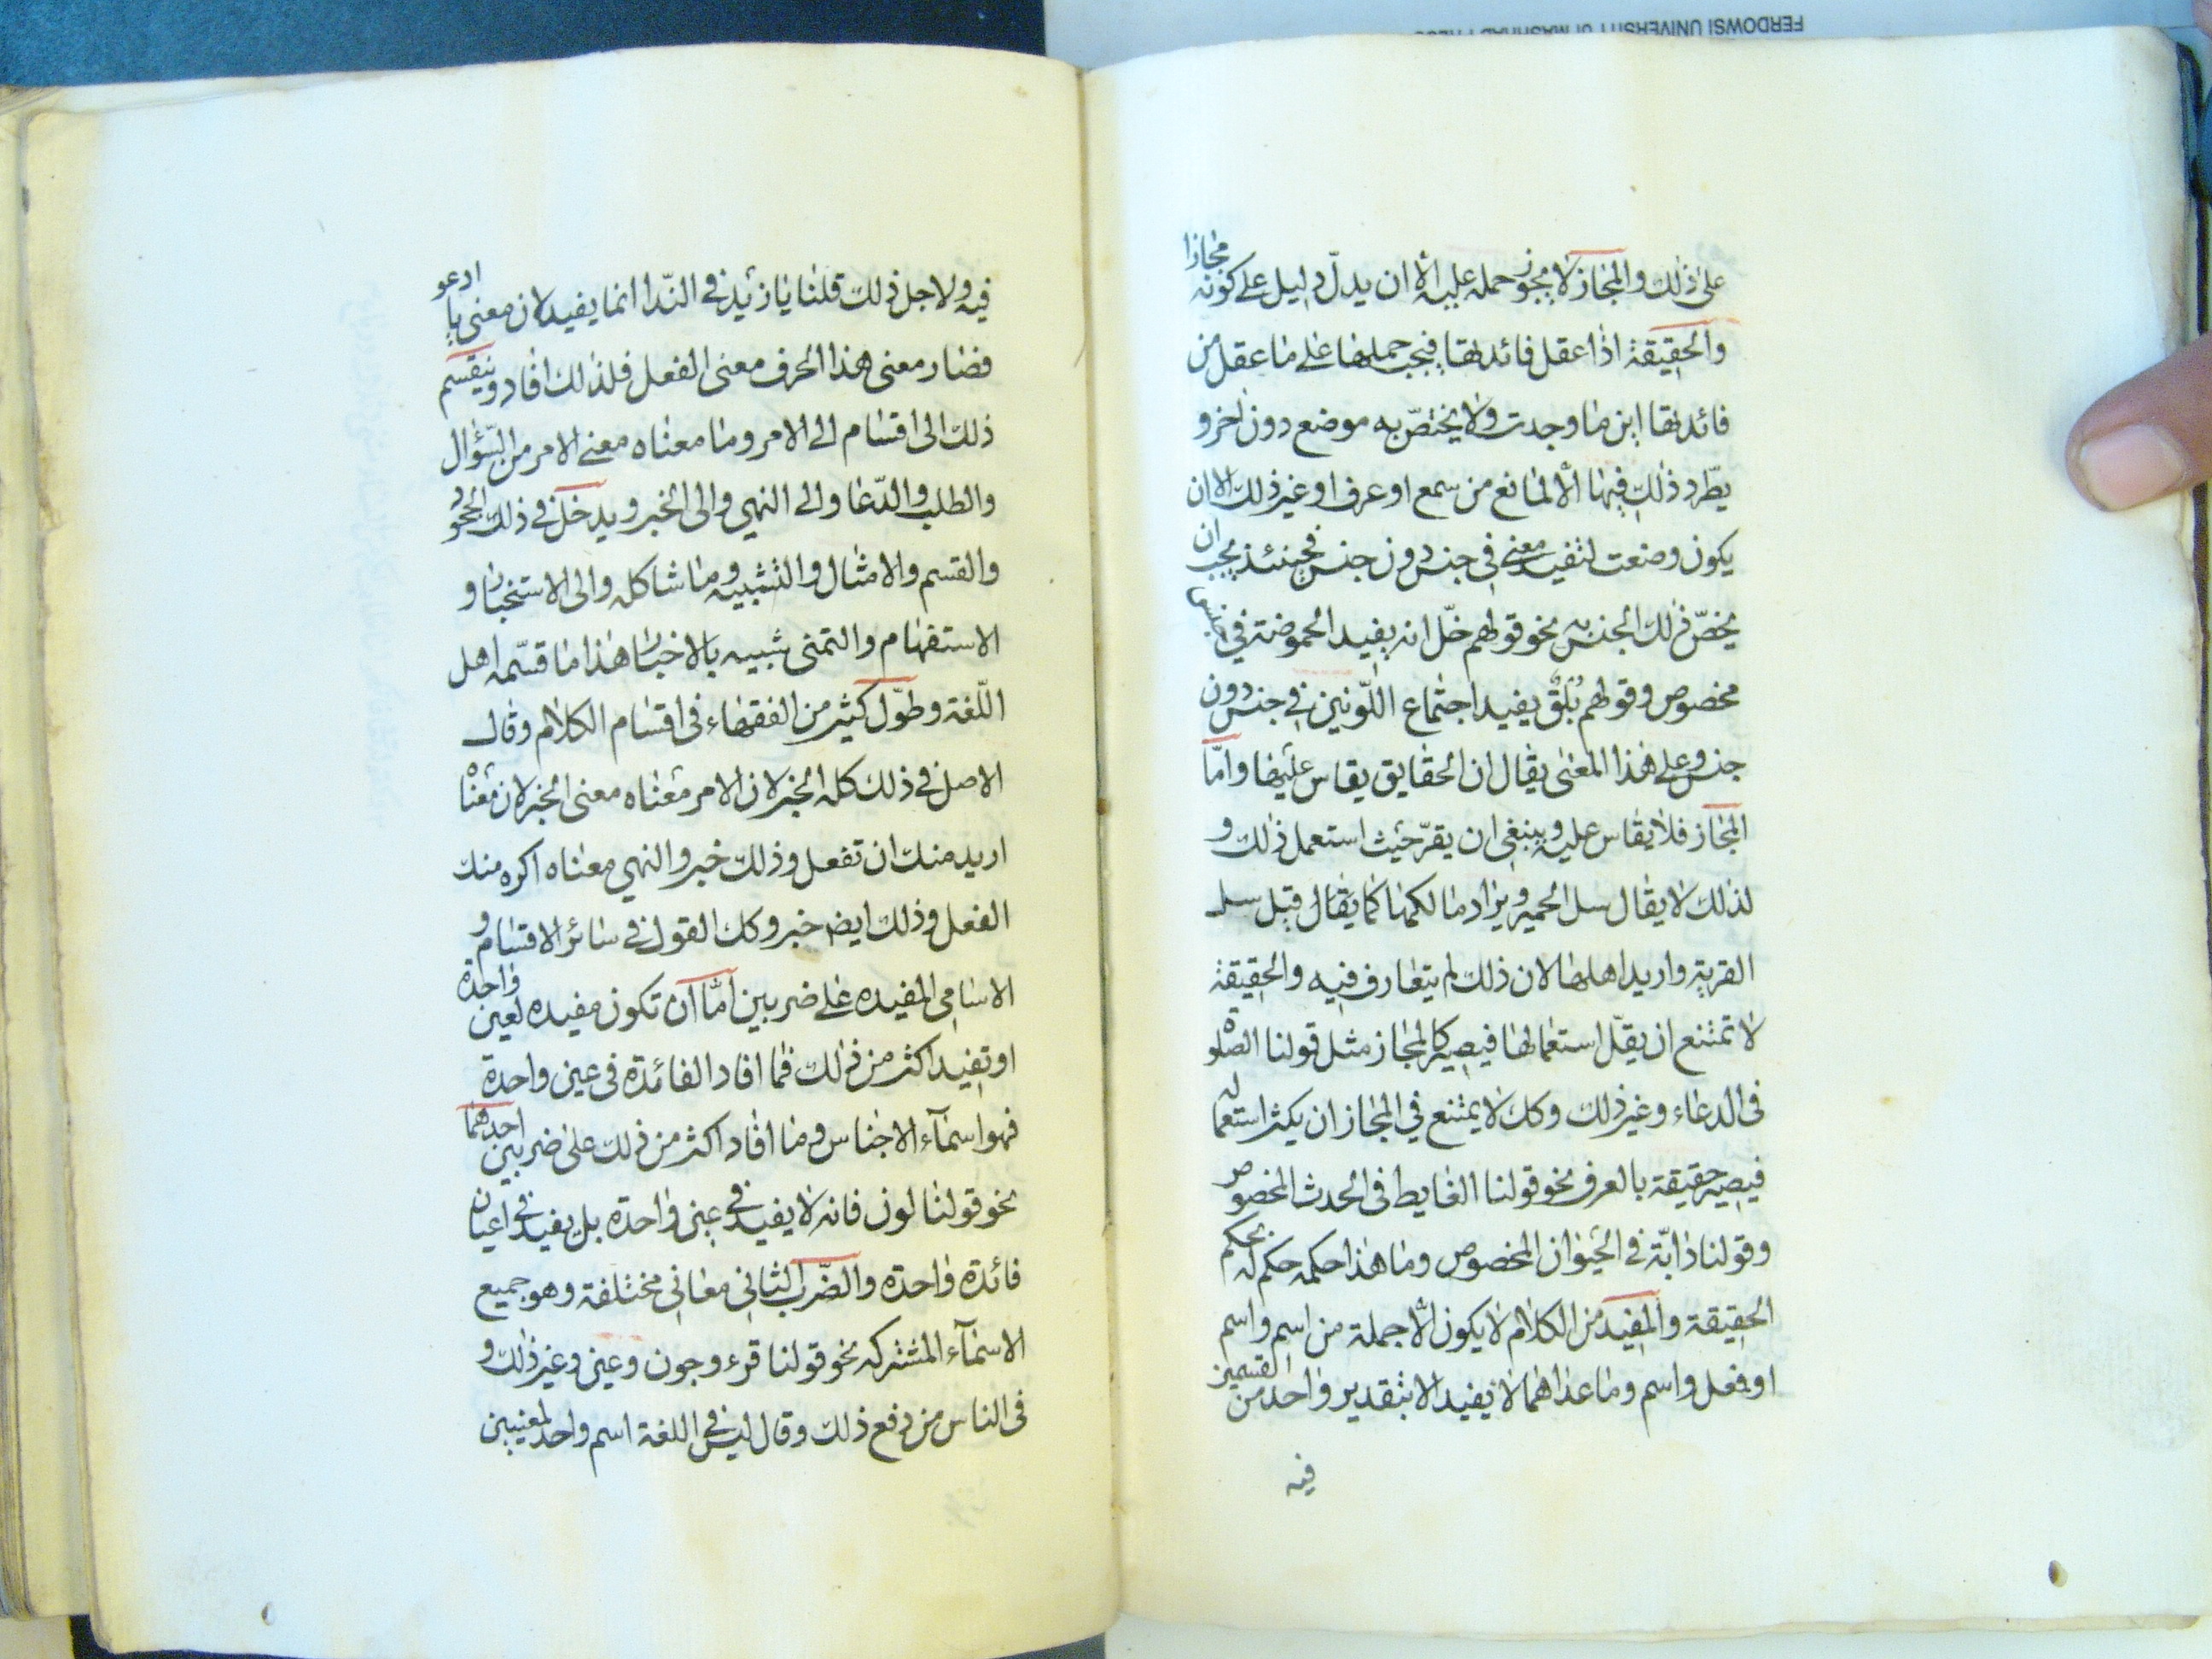 FERDOWSI UNIVERSITY of MASHHAD PRESS
على ذلك والمجاز لا يجوز حمله عليه الا ان يدلّ دليل على كونه مجازا
والحقيقة اذا عقل فائدتها فيجب حملها على ما عقل من
فائدتها اين ما وجدت ولا يختصّ به موضع دون اخر و
يطّرد ذلك فيها الّا لمانع من سمع او عرف او غير ذلك الا ان
يكون وضعت لتفيد معنى في جنس دون جنس فحينئذ يجب ان
يخصّ ذلك الجنس به نحو قولهم خلّ انه يفيد الحموضة في جنس
مخصوص وقولهم بُلَقٌ يفيد اجتماع اللّونين في جنس دون
جنس وعلى هذا المعنى يقال ان الحقايق يقاس عليها وامّا
المجاز فلا يقاس عليه وينبغي ان يقرّ حيث استعمل ذلك و
لذلك لا يقال سل الحمير ويراد مالكها كما يقال قيل سل
القرية واريد اهلها لان ذلك لم يتعارف فيه والحقيقة
لا تمتنع ان يقلّ استعمالها فيصير كالمجاز مثل قولنا الصلوة
فى الدعاء وغير ذلك وكك لا يمتنع في المجاز ان يكثر استعماله
فيصير حقيقة بالعرف نحو قولنا الغايط فى الحدث المخصوص
وقولنا دابّة في الحيوان المخصوص وما هذا حكمه حكم له بحكم
الحقيقة والمفيد من الكلام لا يكون الّا جملة من اسم واسم
او فعل واسم وما عداهما لا يفيد الا بتقدير واحد من القسمين
فيه
فيه ولاجل ذلك قلنا يا زيد في النّدا انما يفيد لان معنى يا ادعو
فصار معنى هذا الحرف معنى الفعل فلذلك افاد وينقسم
ذلك الى اقسام الى الامر وما معناه معنى الامر من السّؤال
والطلب والدّعا والى النهي والى الخبر ويدخل في ذلك الجحود
والقسم والامثال والتشبيه وما شاكله والى الاستخبار و
الاستفهام والتمنى شبيه بالاخبار هذا ما قسّمه اهل
اللّغة وطوّل كثير من الفقهاء فى اقسام الكلام وقال
الاصل في ذلك كله الخبر لان الامر معناه معنى الخبر لان معناه
اريد منك ان تفعل وذلك خبر والنهي معناه اكره منك
الفعل وذلك ايض خبر وكك القول في سائر الاقسام و
الاسامى المفيده على ضربين امّا ان تكون مفيده لعين واحدة
او تفيد اكثر من ذلك فما افاد الفائدة فى عين واحدة
فهو اسمآء الاجناس وما افاد اكثر من ذلك على ضربين احدهما
نحو قولنا لون فانه لا يفيد في عين واحدة بل يفيد في اعيان
فائدة واحدة والضّرب الثاني معاني مختلفة وهو جميع
الاسمآء المشتركه نحو قولنا قرء وجون وعين وغير ذلك و
فى الناس من دفع ذلك وقال ليس في اللغة اسم واحد لمعنيين